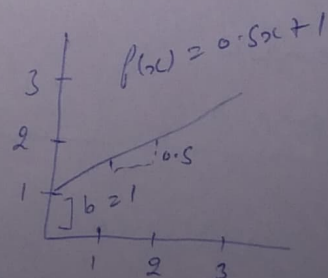 f(x) = 0.5x + 1
3
2
0.5
1
b = 1
1 2 3